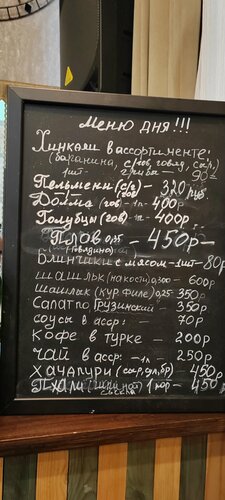 Меню дня!!!
Хинкали в ассортименте:
(баранина, с/гов, говяд, сыр,
1шт- грибы 90=
Пельмени (с/г) - 320 руб
(гов)
Долма (гов) - 1п - 400р
Голубцы (гов) - 1п - 400р
Плов 0,35 - 450р-
(говядина)
Блинчики с мясом - 1шт - 80р
шашлык (на кости) 0,300 - 600р
шашлык (кур. филе) 0,25 350р
Салат по Грузинский - 350р
соусы в асс: - 70р
Кофе в турке - 200р
чай в асс: - 1л - 250р
Хачапури (сыр, сул, бр) - 450р
Пхали 1 пор - 450р